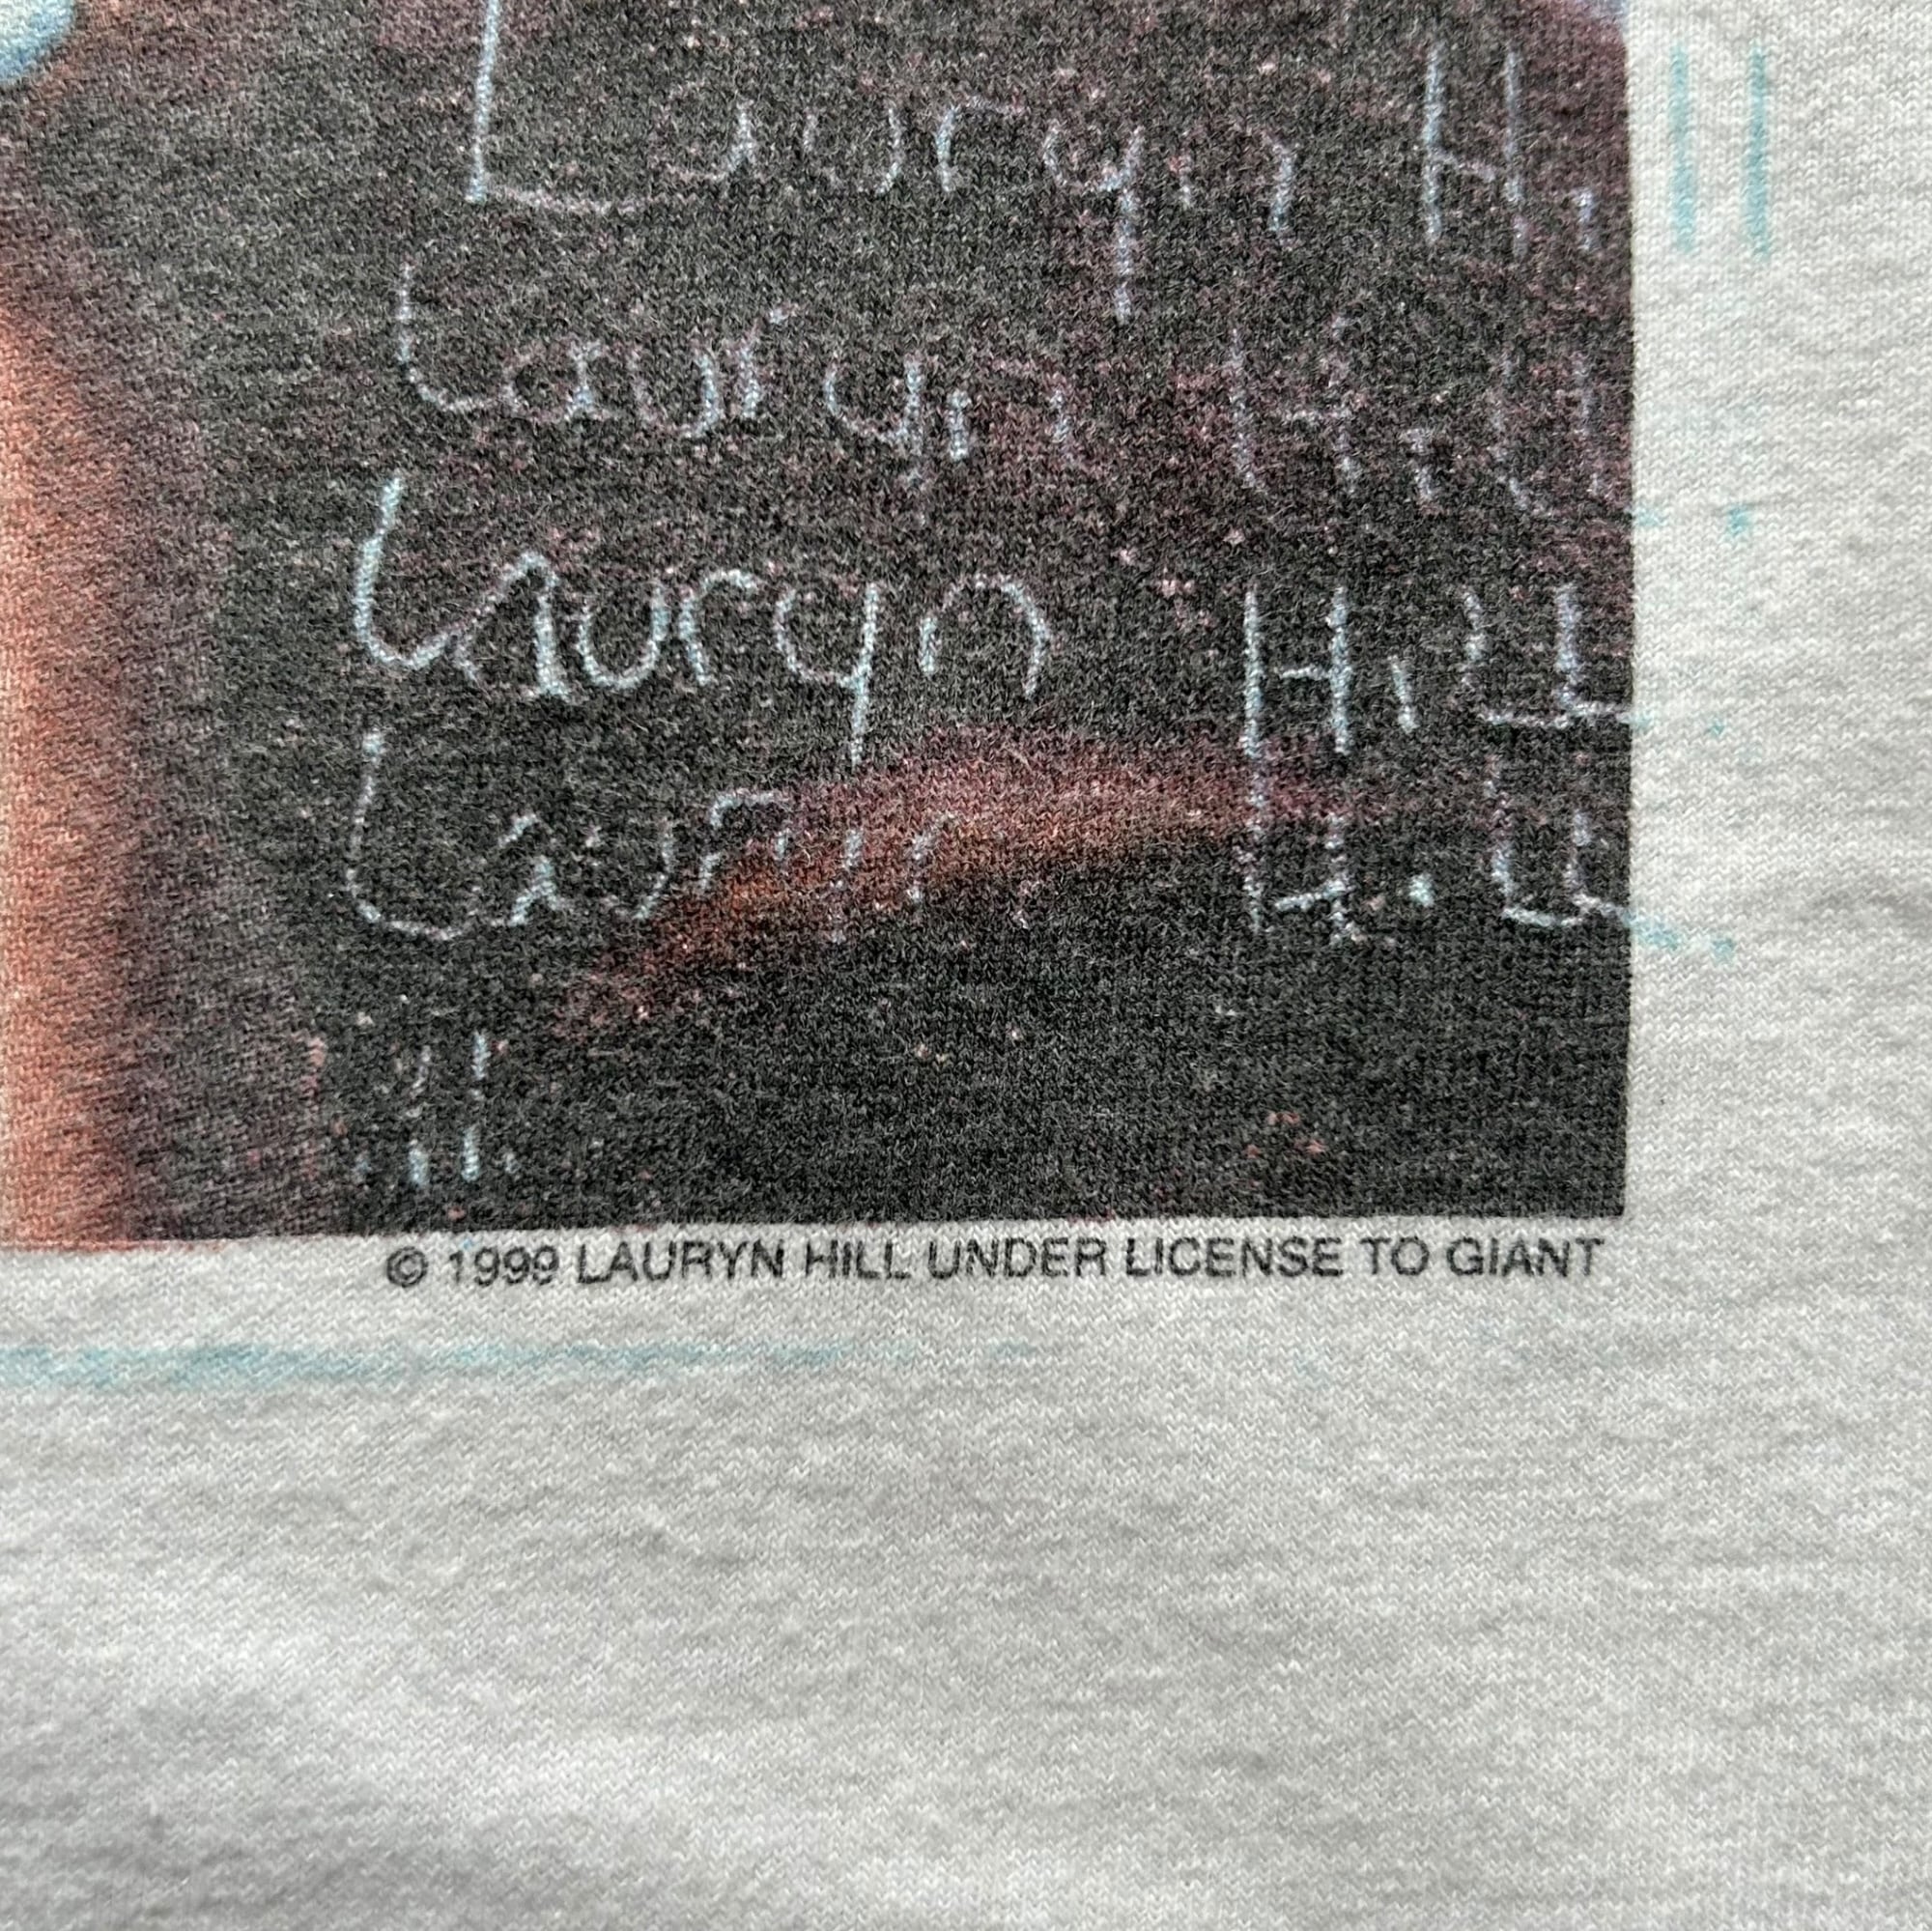 Lauryn Hill
Lauryn Hill
Lauryn Hill
Lauryn Hill
© 1999 LAURYN HILL UNDER LICENSE TO GIANT